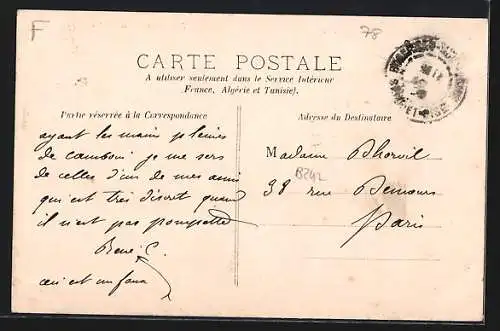 F
78
CARTE POSTALE
A utiliser seulement dans le Service Intérieur
France, Algérie et Tunisie).
Partie réservée à la Correspondance
Adresse du Destinataire
ayant les mains pleines
de cambouis je me sers
de celles d'un de mes amis
qui est très discret quand
il n'est pas pompette
René C.
ceci est un faux
Madame
B242
38 rue Demours
Paris
ET-OISE